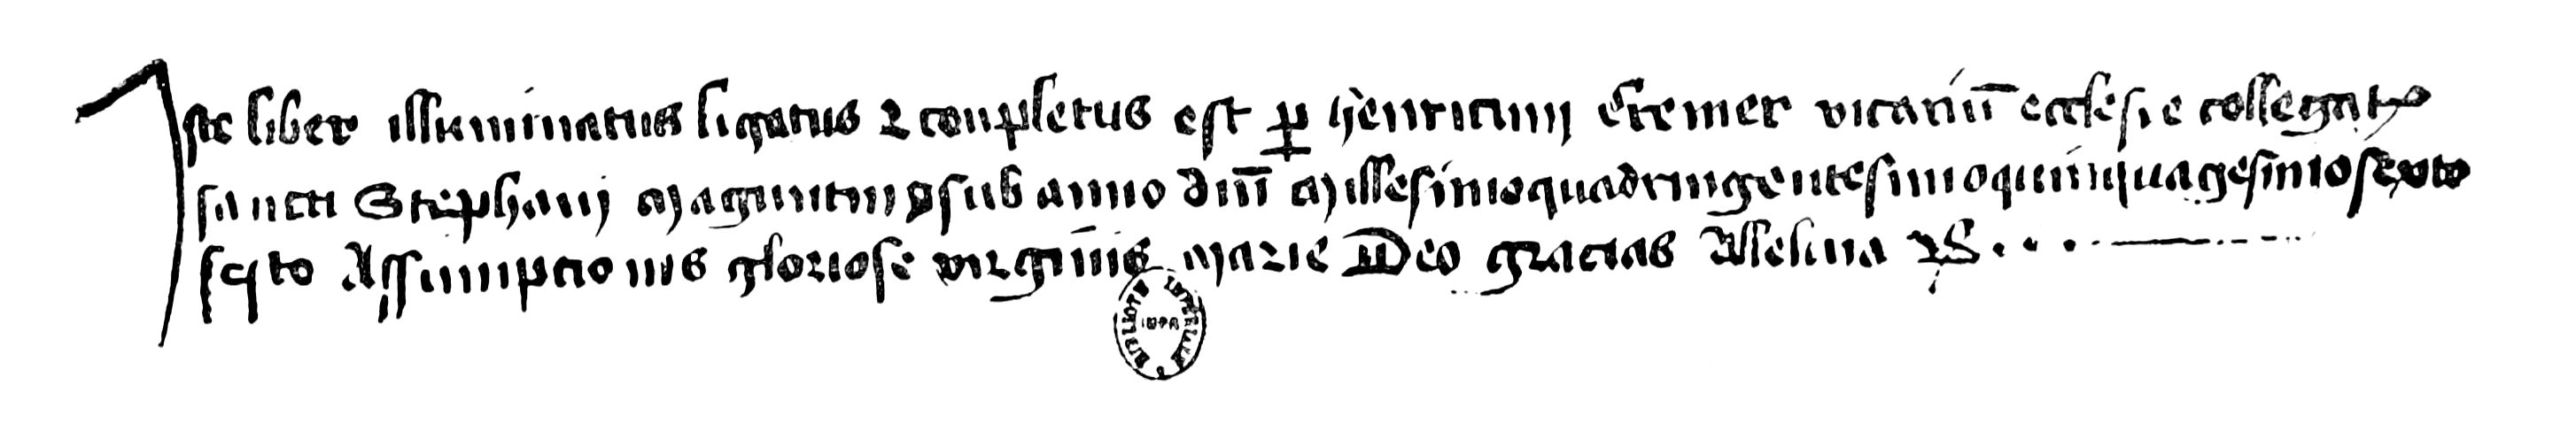 Iste liber illuminatus ligatus ⁊ completus est ꝑ henricum Cremer vicariū ecclesie collegatꝭ
sancti Stephani Maguntini sub anno dn̄i Millesimoquadringentesimoquinquagesimosexto
festo Assumptionis gloriose virginis Marie Deo gracias Alleluia